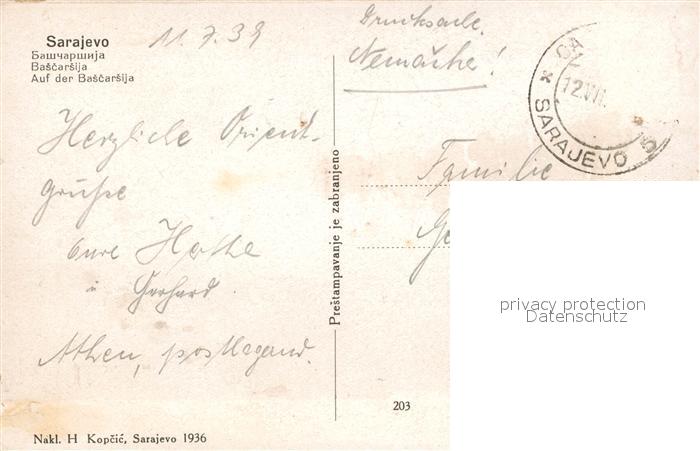 Sarajevo
Башчаршија
Baščaršija
Auf der Baščaršija
11.7.39
Drucksache.
Nemačke!
12.VII.
SARAJEVO
Herzliche Orient-
grüße
Eure Herthe
u Gerhard.
Athen, postlagernd.
Preštampavanje je zabranjeno
Familie
privacy protection
Datenschutz
203
Nakl. H Kopčić, Sarajevo 1936